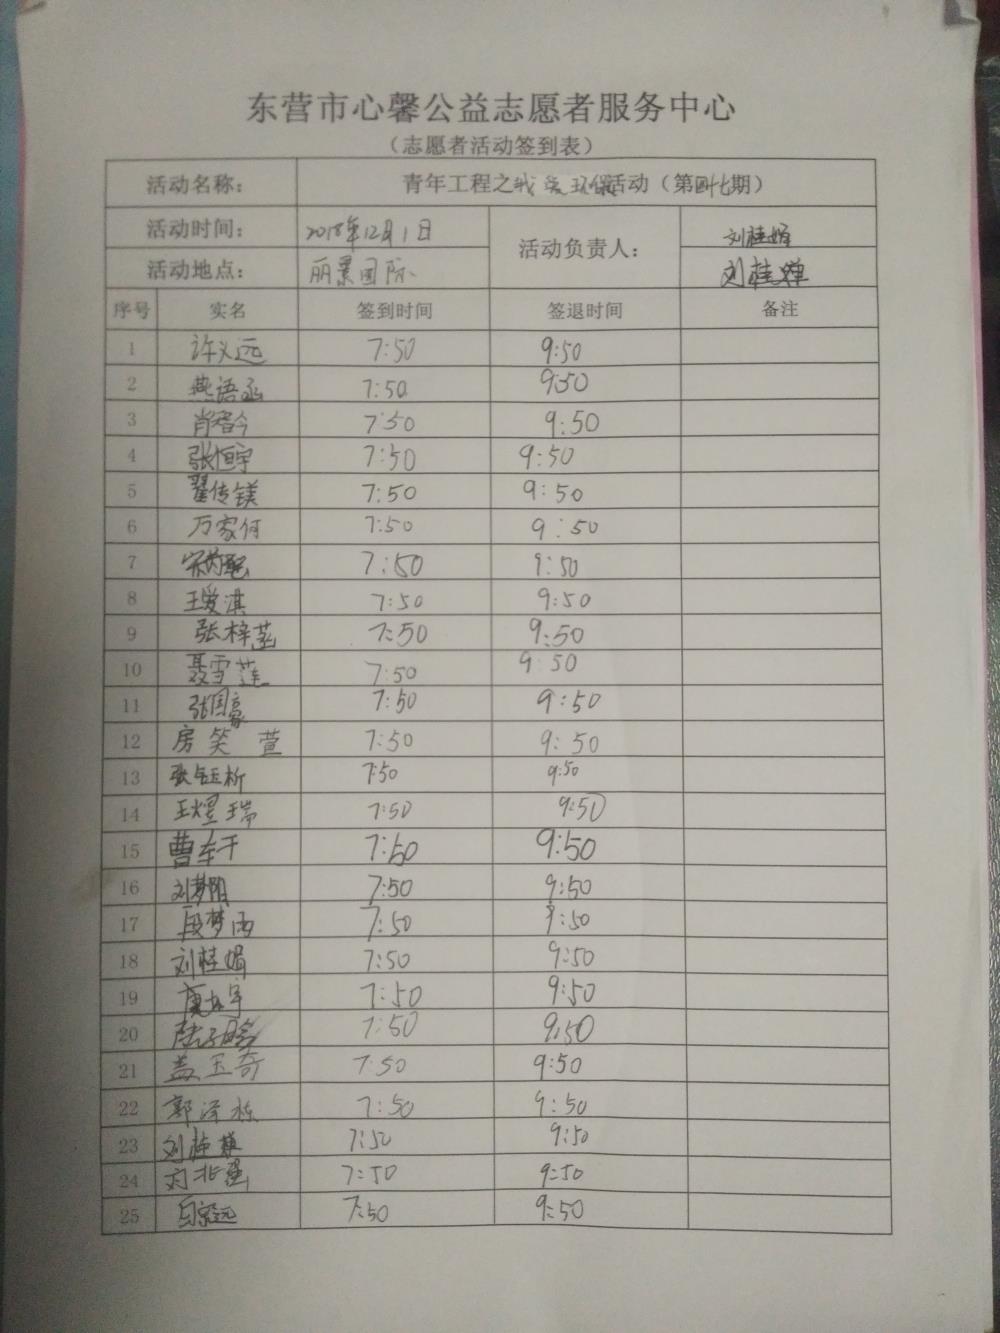 东营市心馨公益志愿者服务中心
（志愿者活动签到表）
活动名称： 青年工程之我爱环保活动（第四十七期）
活动时间： 2018年12月1日 活动负责人： 刘桂娟
活动地点： 丽景国际 刘桂
序号 实名 签到时间 签退时间 备注
1 许义远 7:50 9:50
2 燕语函 7:50 9:50
3 肖 7:50 9:50
4 张恒宇 7:50 9:50
5 翟传镁 7:50 9:50
6 万家何 7:50 9:50
7 7:50 9:50
8 王爱淇 7:50 9:50
9 张梓菡 7:50 9:50
10 聂雪莲 7:50 9:50
11 张国豪 7:50 9:50
12 房笑萱 7:50 9:50
13 张钰析 7:50 9:50
14 王煜瑞 7:50 9:50
15 曹 7:50 9:50
16 刘梦阳 7:50 9:50
17 段梦雨 7:50 9:50
18 刘桂娟 7:50 9:50
19 7:50 9:50
20 7:50 9:50
21 盖玉奇 7:50 9:50
22 郭泽栋 7:50 9:50
23 刘桂 7:50 9:50
24 7:50 9:50
25 7:50 9:50